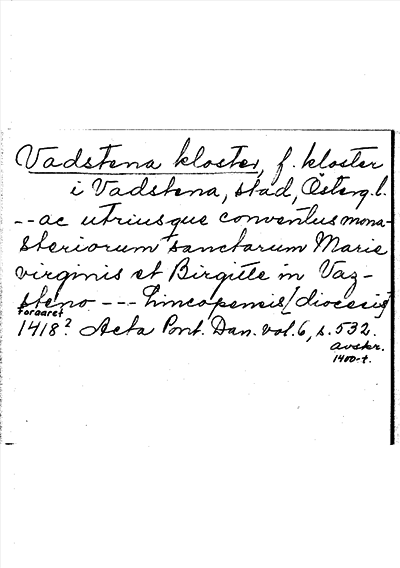 Vadstena kloster, f. kloster
i Vadstena, stad, Österg.l.
-- ac utriusque conventus mona-
steriorum sanctarum Marie
virginis et Birgitte in Vaz-
steno --- Lincopensis [diocesis]
foraaret
1418? Acta Pont. Dan. vol. 6, s. 532.
avskr.
1400-t.